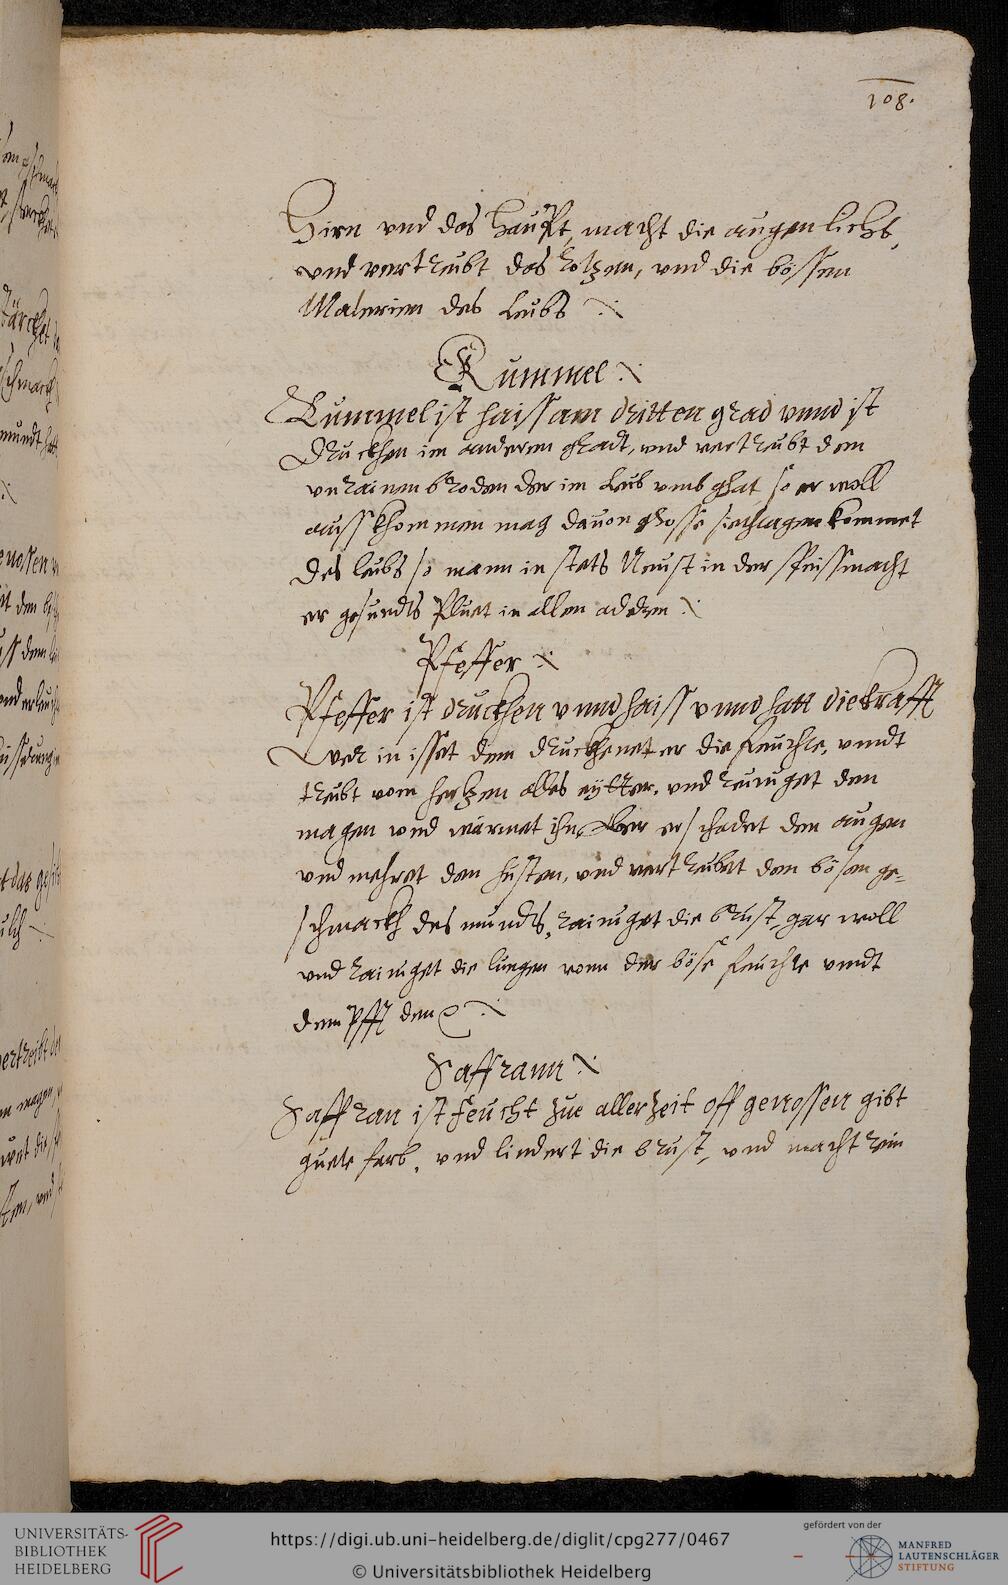 108.
Hirn und das Haupt, macht die augen licht,
und vertreibt das kotzen, und die bössen
Materien des leibs
Kummel
Cummel ist haiss am dritten grad unnd ist
druckhen im anderen gradt, und vertreibt den
unrainen broden der im leib umb ghat, so er woll
auss khommen mag dauon grosse siechtagen kommet
des leibs so mann in stets Neust in der speiss macht
er gesundts Pluet in allen adern
Pfeffer
Pfeffer ist druckhen unnd haiss unnd hatt die krafft
wer in isset dem druckhenet er die feuchte, unndt
treibt vom hertzen alles eytter, und reiniget den
magen und wärmet ihn, Aber er schadet den augen
und mehret den husten, und vertreibet den bösen ge-
schmackh des mundts, rainiget die brust, gar woll
und rainiget die lungen vonn der böse feuchte undt
den
Saffrann
Saffran ist feucht zue aller zeit off genossen gibt
guete farb, und lindert die brust, und macht rein
UNIVERSITÄTS-
BIBLIOTHEK
HEIDELBERG
https://digi.ub.uni-heidelberg.de/diglit/cpg277/0467
© Universitätsbibliothek Heidelberg
gefördert von der
MANFRED
LAUTENSCHLÄGER
STIFTUNG